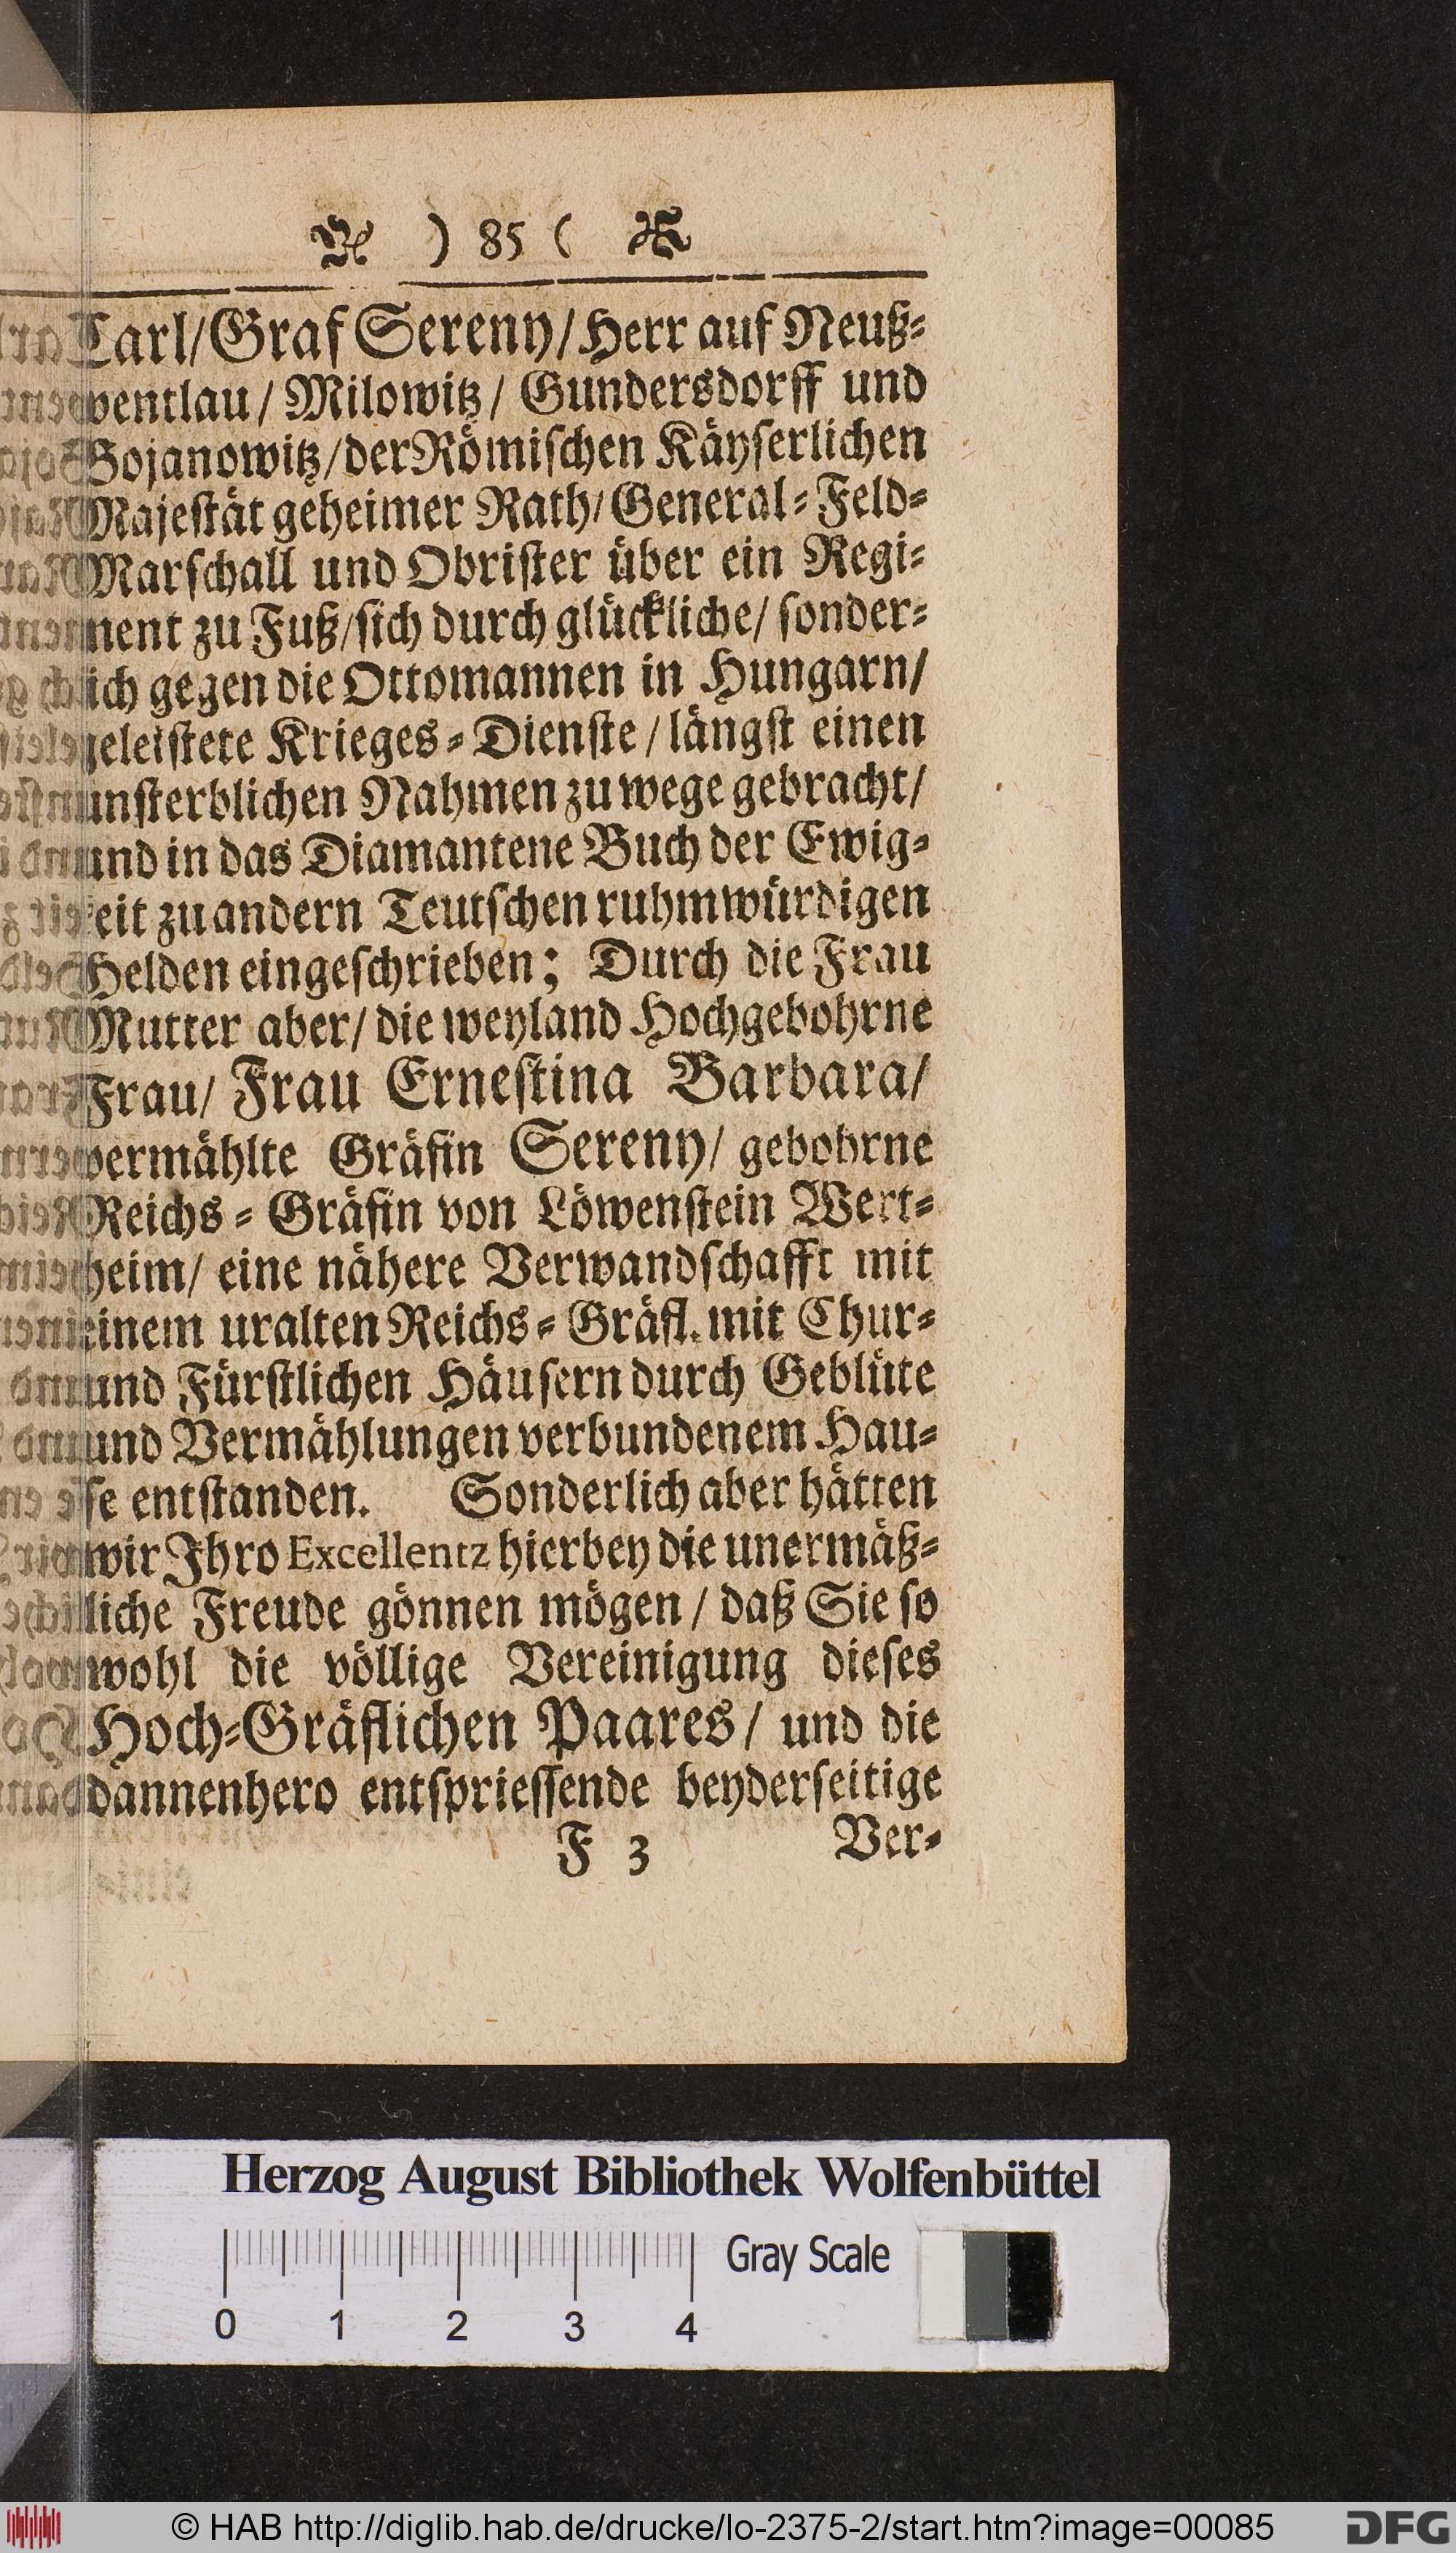 ) 85 (
Carl/Graf Sereny/Herr auf Neuß⸗
wentlau/ Milowitz/ Gundersdorff und
Bojanowitz/der Römischen Käyserlichen
Majestät geheimer Rath/General⸗Feld⸗
Marschall und Obrister über ein Regi⸗
ment zu Fuß/sich durch glückliche/ sonder⸗
lich gegen die Ottomannen in Hungarn/
geleistete Krieges⸗Dienste/längst einen
unsterblichen Nahmen zu wege gebracht/
und in das Diamantene Buch der Ewig⸗
keit zu andern Teutschen ruhmwürdigen
Helden eingeschrieben; Durch die Frau
Mutter aber/ die weyland Hochgebohrne
Frau/ Frau Ernestina Barbara/
vermählte Gräfin Sereny/ gebohrne
Reichs⸗Gräfin von Löwenstein Wert⸗
heim/ eine nähere Verwandschafft mit
einem uralten Reichs⸗Gräfl. mit Chur⸗
und Fürstlichen Häusern durch Geblüte
und Vermählungen verbundenem Hau⸗
se entstanden. Sonderlich aber hätten
wir Ihro Excellentz hierbey die unermäß⸗
liche Freude gönnen mögen/ daß Sie so
wohl die völlige Vereinigung dieses
Hoch⸗Gräflichen Paares/ und die
dannenhero entspriessende beyderseitige
F 3 Ver⸗
Herzog August Bibliothek Wolfenbüttel
Gray Scale
0 1 2 3 4
© HAB http://diglib.hab.de/drucke/lo-2375-2/start.htm?image=00085
DFG